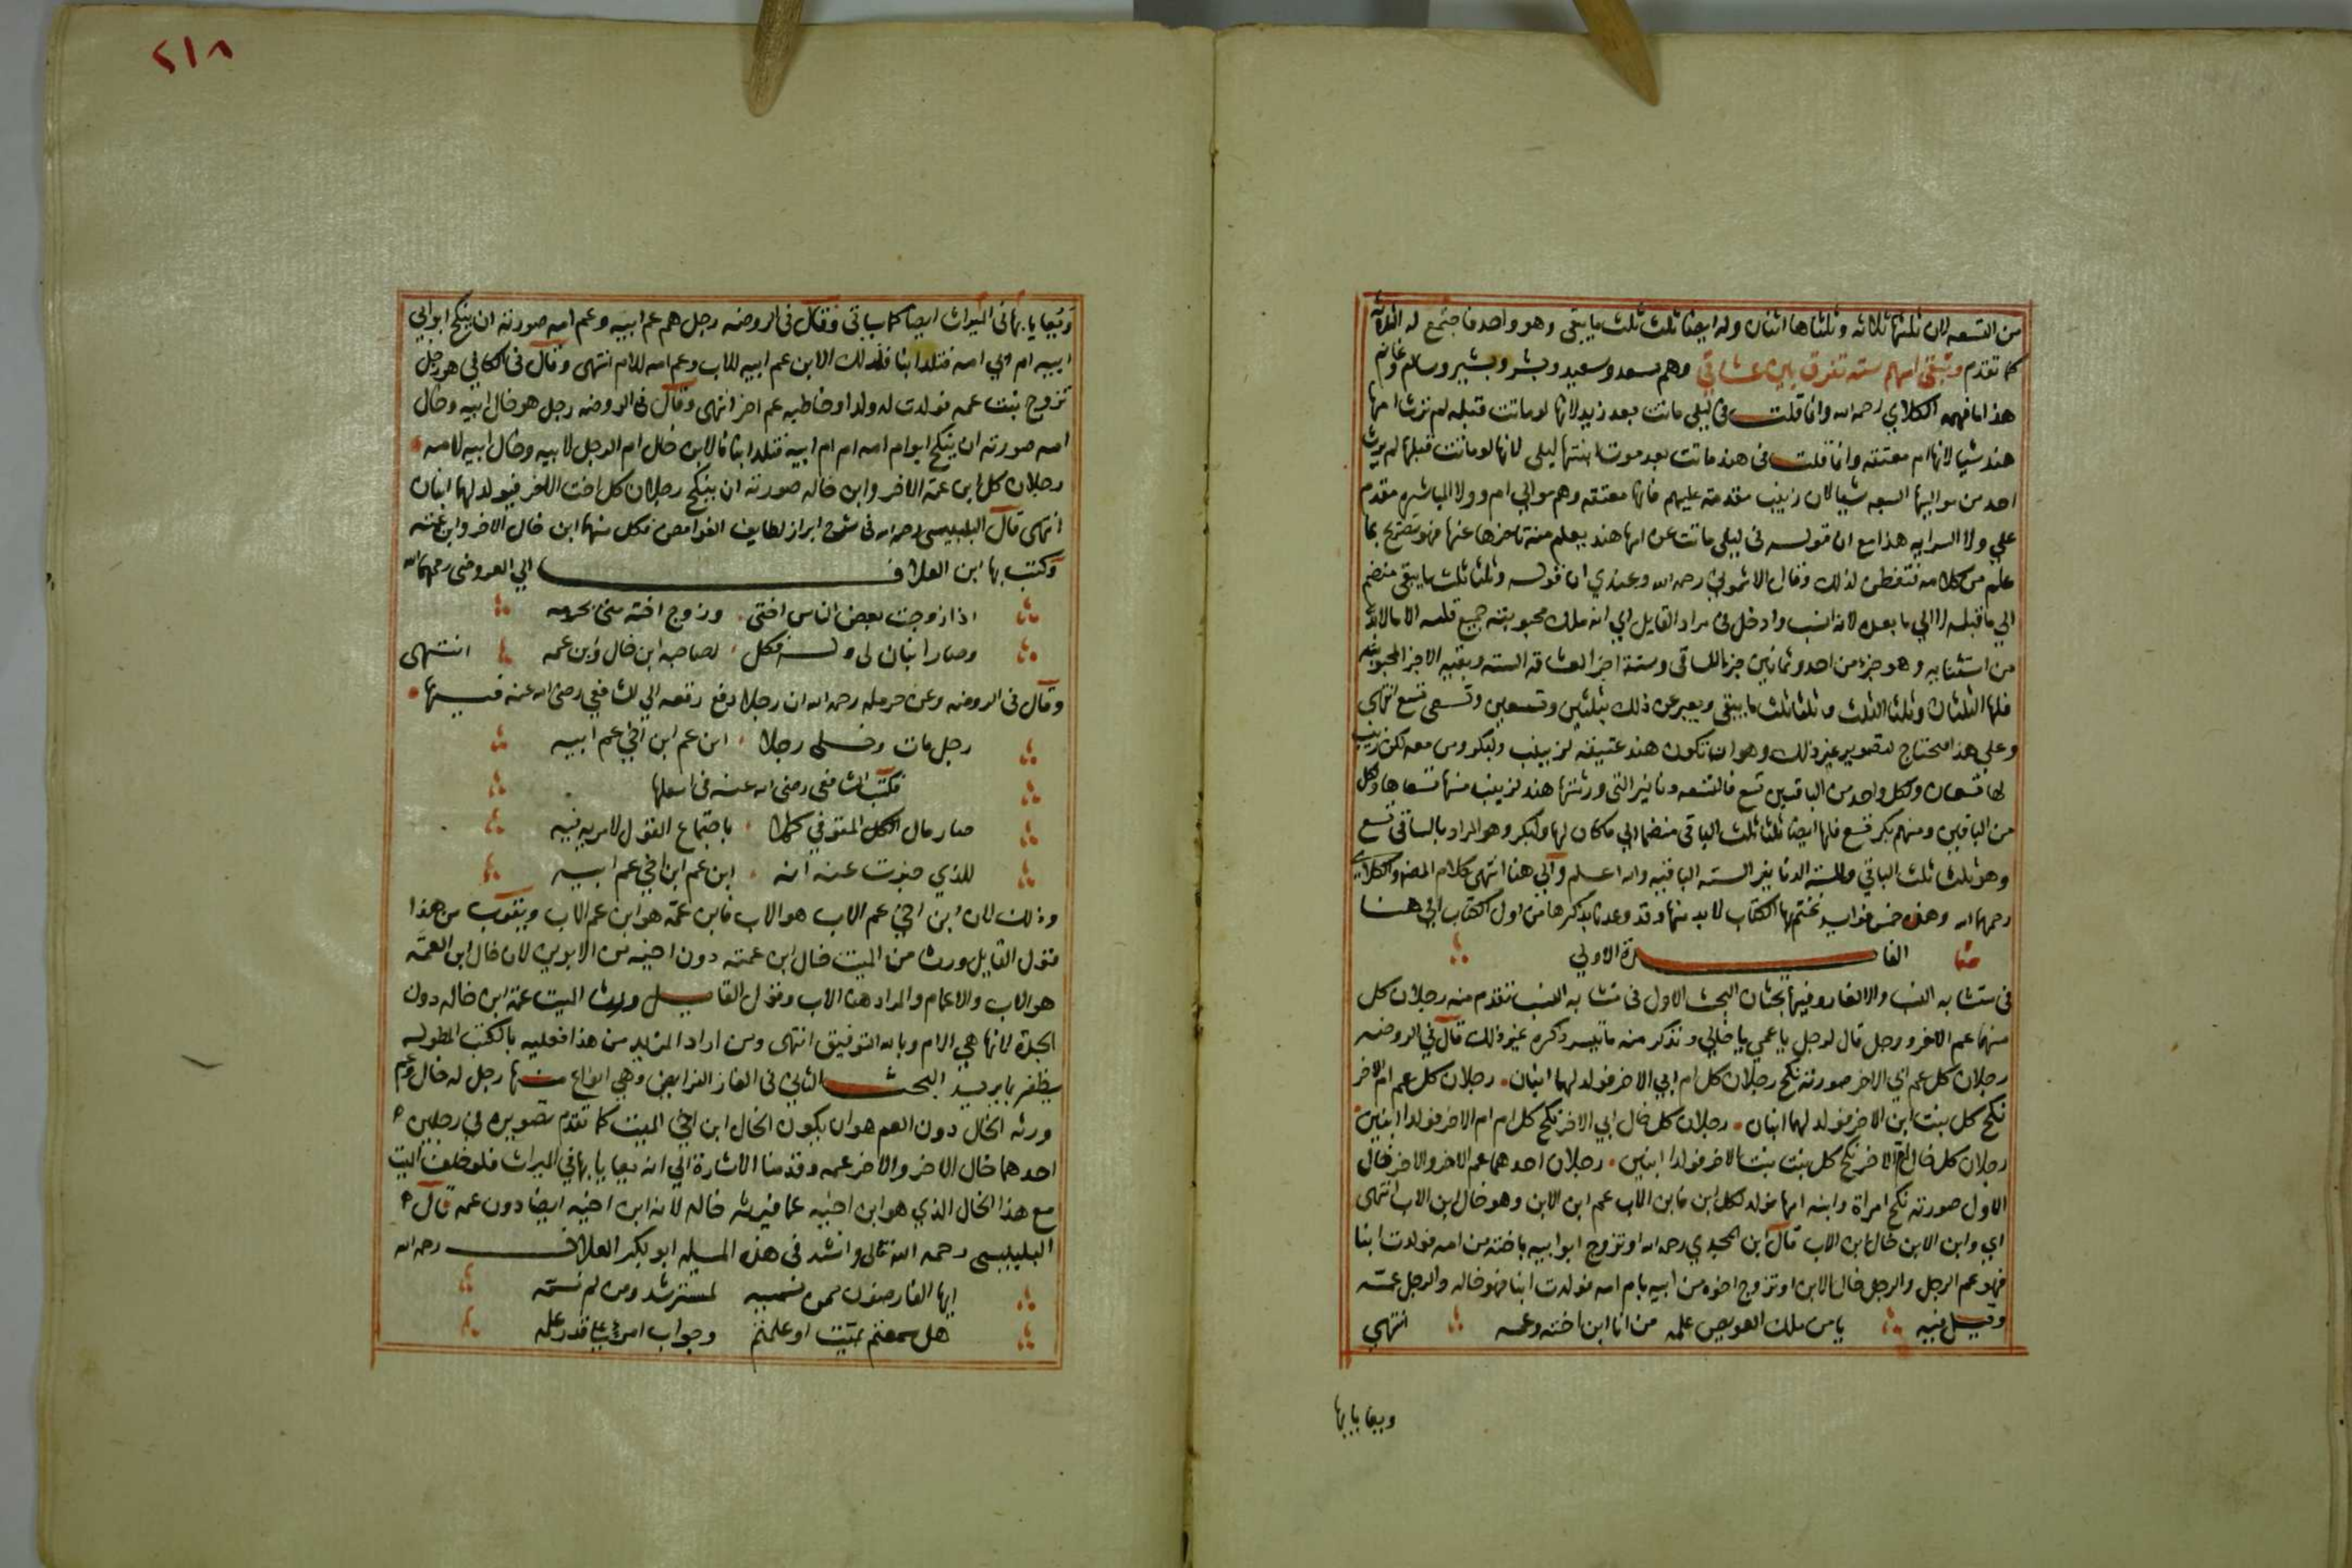 من التسعه لان ثلثها ثلاثه وثلثاها اثنان وله ايضا ثلث ثلث ما يبقى وهو واحد فاجتمع له الثلاثه
كما تقدم وتبقى اسهم سته تفرق بين عشاقي وهم سعد وسعيد وبشر وبشير وسالم وغانم
هذا ما فهمه الكلاي رحمه الله وانما قلت في ليلى ماتت بعد زيد لانها لو ماتت قبله لم ترث امها
هند شيا لانها ام معتقه وانما قلت في هند ماتت بعد موت ابنتها ليلى لانها لو ماتت قبلها لم يرث
احد من مواليها السبعه شيا لان زينب مقدمة عليهم فانها معتقه وهم موالي ام وولا المباشره مقدم
علي ولا السرايه هذا مع ان قوله في ليلى ماتت عن امها هند يعلم منه تاخرها عنها فهو تصريح بما
علم من كلامه فتفطن لذلك وقال الاشموني رحمه الله وعندي ان قوله وثلثا ثلث ما يبقى منضم
الي ما قبله لا الي ما بعده لانه انسب وادخل في مراد القايل اي انه ملك محبوبته جميع قلبه الا ما لابد
من استثنايه وهو جزء من احد وثمانين جزء للساقي وستة اجزا لعشاقه السته وبقيه الاجزا لمحبوبته
فلها الثلثان وثلثا الثلث وثلثا ثلث ما يبقى ويعبر عن ذلك بثلثين وتسعين وتسعى تسع انتهى
وعلي هذا فتحتاج لتصوير غير ذلك وهو ان تكون هند عتيقه لزينب ولبكر ومن معه لكن زينب
لها تسعان ولكل واحد من الباقيين تسع فالتسعه دنانير التي ورثتها هند لزينب منها تسعاها ولكل
من الباقيين ومنهم بكر تسع فلها ايضا ثلثا ثلث الباقي منضما الي ما كان لها ولبكر وهو المراد بالساقي تسع
وهو ثلث ثلث الباقي وللسته الدنانير السته الباقيه والله اعلم والي هنا انتهى كلام المصنف والكلاي
رحمهما الله وهذه خمس فوايد نختم بها الكتاب لابد منها وقد وعدنا بذكرها من اول الكتاب الي هنا
الفايدة الاولي
في متشابه النسب والالغاز وفيها بحثان البحث الاول في متشابه النسب تقدم منه رجلان كل
منهما عم الاخر ورجل قال لرجل يا عمي يا خالي ونذكر منه ما تيسر ذكره غير ذلك قال في الروضه
رجلان كل عم ابي الاخر صورته نكح رجلان كل ام ابي الاخر فولد لهما ابنان رجلان كل عم ام الاخر
نكح كل بنت ابن الاخر فولد لهما ابنان رجلان كل خال ابي الاخر نكح كل ام ام الاخر فولدا ابنين
رجلان كل خال ام الاخر نكح كل بنت بنت الاخر فولدا ابنين رجلان احدهما عم الاخر والاخر خال
الاول صورته نكح امراة وابنه امها فولد لكل ابن فابن الاب عم ابن الابن وهو خال ابن الاب انتهى
اي وابن الابن خال ابن الاب قال ابن المجدي رحمه الله او تزوج ابو ابيه باخته من امه فولدت ابنا
فهو عم الرجل والرجل خال الابن او تزوج اخوه من ابيه بام امه فولدت ابنا فهو خاله والرجل عمه
وقيل فيه يا من ملك العويص علمه من انا ابن اخته وعمه انتهي
ويعايا بها
٢١٨
ويعايا بها في الميراث ايضا كما سياتي وقال في الروضه رجل هو عم ابيه وعم امه صورته ان ينكح ابو ابي
ابيه ام ابي امه فتلد ابنا فلذلك الابن عم ابيه للاب وعم امه للام انتهى وقال في الكافي هو رجل
تزوج بنت عمه فولدت له ولدا وخاطبه عم اخر انتهى وقال في الروضه رجل هو خال ابيه وخال
امه صورته ان ينكح ابو ام امه ام ام ابيه فتلد ابنا فالابن خال ام الرجل لابيه وخال ابيه لامه
رجلان كل ابن عمة الاخر وابن خاله صورته ان ينكح رجلان كل اخت الاخر فيولد لهما ابنان
انتهى قال البلبيسي رحمه الله في شرح ابراز لطايف الغوامض فكل منهما ابن خال الاخر وابن عمته
وكتب بها ابن العلاف الي العروضي رحمهما الله
اذا زوجت بعض الناس اختي وزوج اخته مني بحرمه
وصار ابنان لي وله فكل لصاحبه ابن خال وبن عمه انتهى
وقال في الروضه وعن حرمله رحمه الله ان رجلا دفع رقعه الي الشافعي رضي الله عنه فيها
رجل مات وخلى رجلا ابن عم ابن اخي عم ابيه
فكتب الشافعي رضي الله عنه في اسفلها
صار مال المتوفي كملا باجتماع القول لا مريه فيه
للذي خبرت عنه انه ابن عم ابن اخي عم ابيه
وذلك لان ابن اخي عم الاب هو الاب فابن عمه هو ابن عم الاب ويقرب من هذا
قول القايل ورث من الميت خال ابن عمته دون اخيه من الابوين لان خال ابن العمه
هو الاب والاعمام والمراد هنا الاب وقول القايل ورث الميت عمة ابن خاله دون
الجدة لانها هي الام وبالله التوفيق انتهى ومن اراد المزيد من هذا فعليه بالكتب المطوله
يظفر بما يريد البحث الثاني في الغاز الفرايض وهي انواع منها رجل له خال وعم
ورثه الخال دون العم هو ان يكون الخال ابن اخي الميت كما تقدم تصويره في رجلين
احدهما خال الاخر والاخر عمه وقدمنا الاشارة الي انه يعايا بها في الميراث فلو خلف الميت
مع هذا الخال الذي هو ابن اخيه عما فيرثه خاله لانه ابن اخيه ايضا دون عمه قال
البلبيسي رحمه الله تعالى وانشد في هذه المسيله ابو بكر العلاف رحمه الله
لمسترشد ومن لم نسمه
هل سمعتم بميت او علمتم وجواب امرء علي قدر علمه